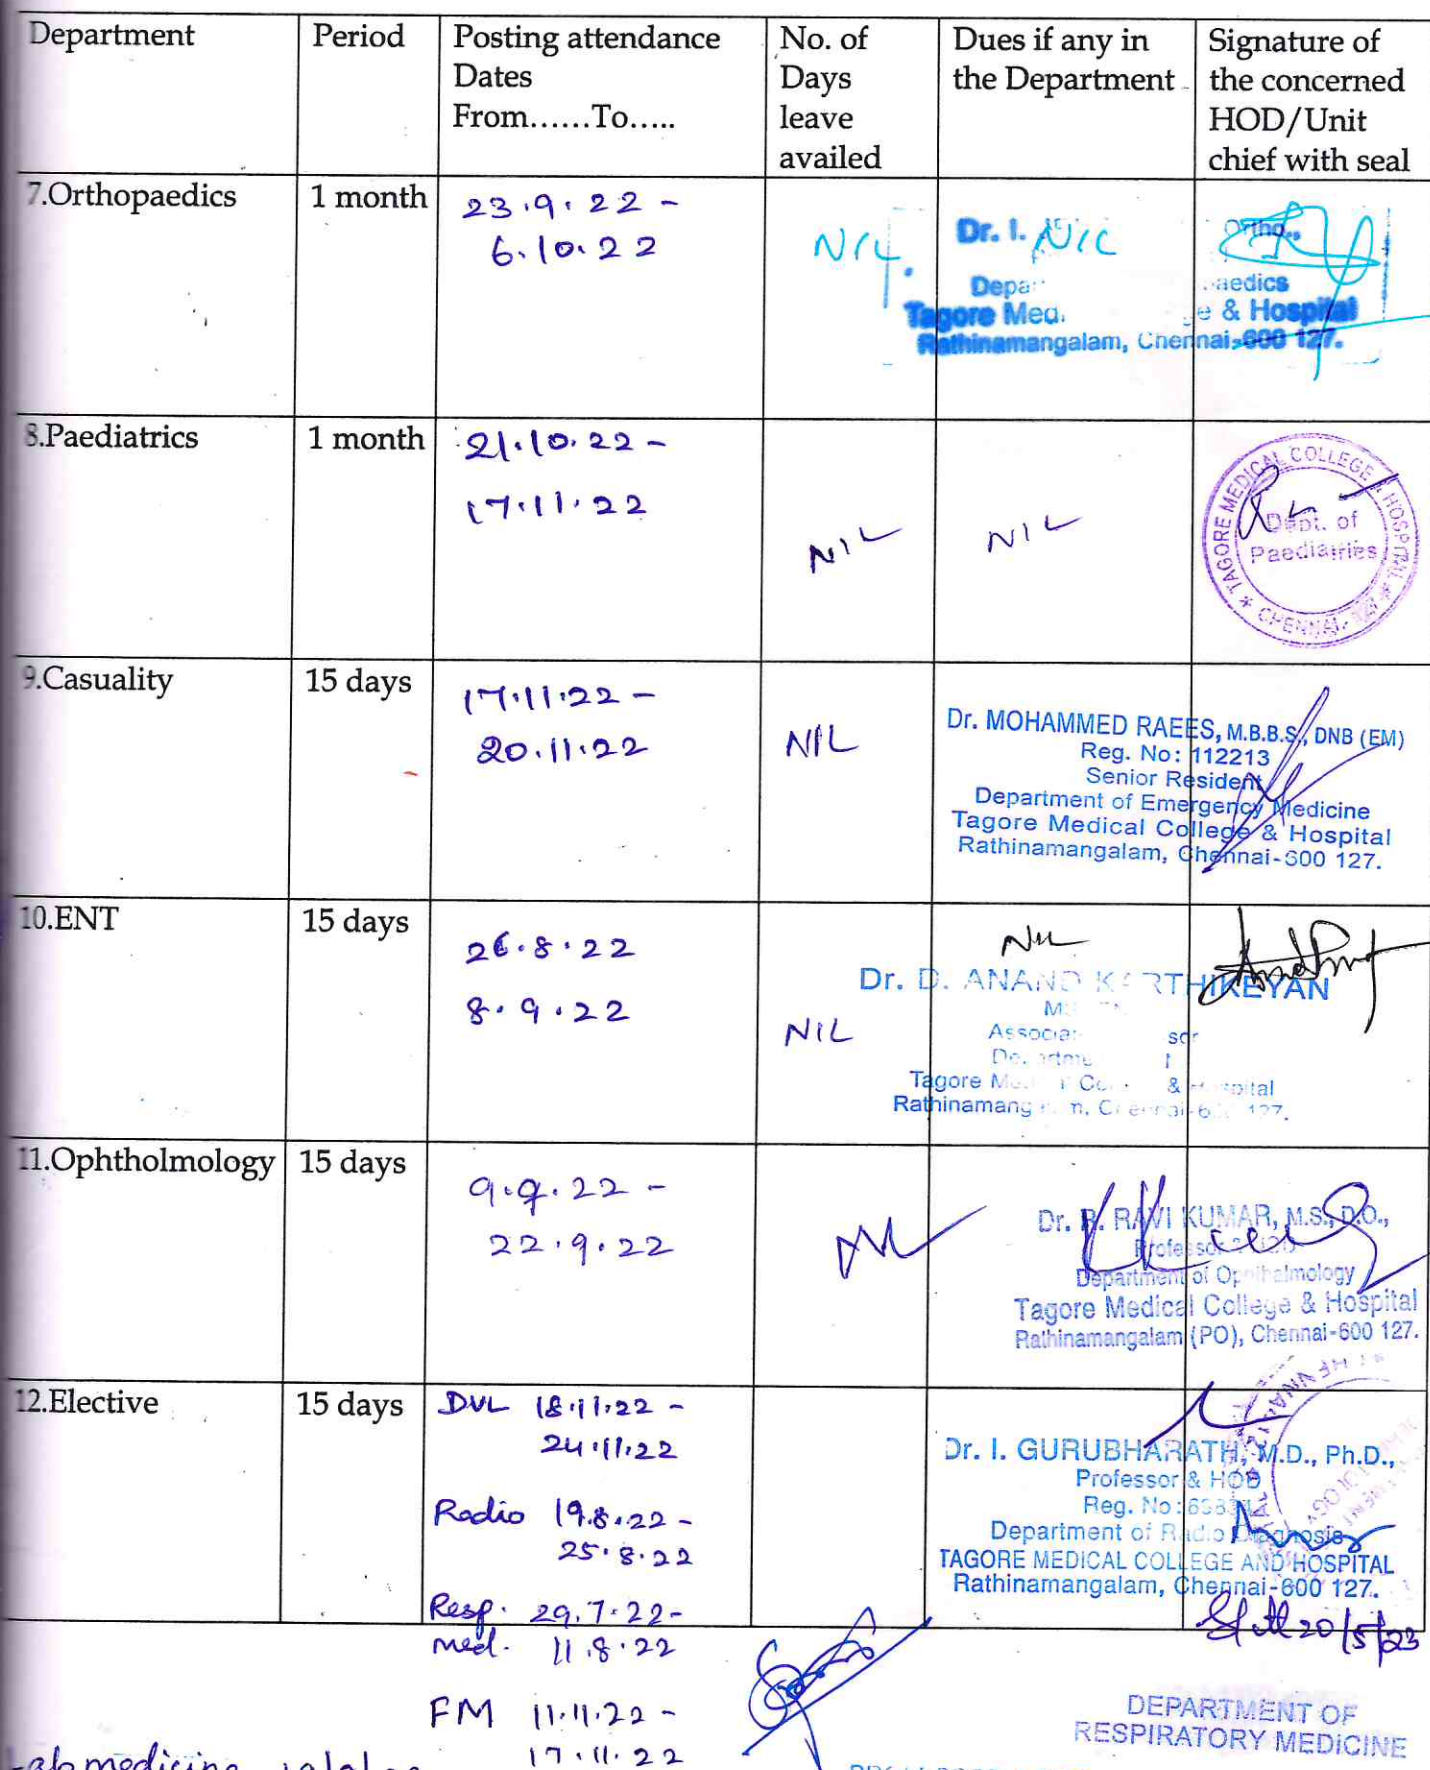 Department
Period
Posting attendance
Dates
From......To.....
No. of
Days
leave
availed
Dues if any in
the Department
Signature of
the concerned
HOD/Unit
chief with seal
7.Orthopaedics
1 month
23.9.22 -
6.10.22
NIL
NIL
Dr. I.
Ortho.,
Tagore Med & Hospital
Rathinamangalam, Chennai-600 127.
8.Paediatrics
1 month
21.10.22 -
17.11.22
NIL
NIL
TAGORE MEDICAL COLLEGE & HOSPITAL
CHENNAI
Dept. of
Paediatrics
9.Casuality
15 days
17.11.22 -
20.11.22
NIL
Dr. MOHAMMED RAEES, M.B.B.S., DNB (EM)
Reg. No: 112213
Senior Resident
Department of Emergency Medicine
Tagore Medical College & Hospital
Rathinamangalam, Chennai-600 127.
10.ENT
15 days
26.8.22
8.9.22
NIL
Nil
Dr. D. ANAND KARTHIKEYAN
Tagore
Rathinamang
11.Ophtholmology
15 days
9.9.22 -
22.9.22
Nil
Dr. R. RAVI KUMAR, M.S., D.O.,
Professor
Department of Ophthalmology
Tagore Medical College & Hospital
Rathinamangalam (PO), Chennai-600 127.
12.Elective
15 days
DVL 18.11.22 -
24.11.22
Radio 19.8.22 -
25.8.22
Resp. 29.7.22-
med. 11.8.22
FM 11.11.22 -
17.11.22
Dr. I. GURUBHARATH, M.D., Ph.D.,
Professor & HOD
Reg. No:
Department of Radio Diagnosis
TAGORE MEDICAL COLLEGE AND HOSPITAL
Rathinamangalam, Chennai-600 127.
20/5/23
DEPARTMENT OF
RESPIRATORY MEDICINE
Lab medicine